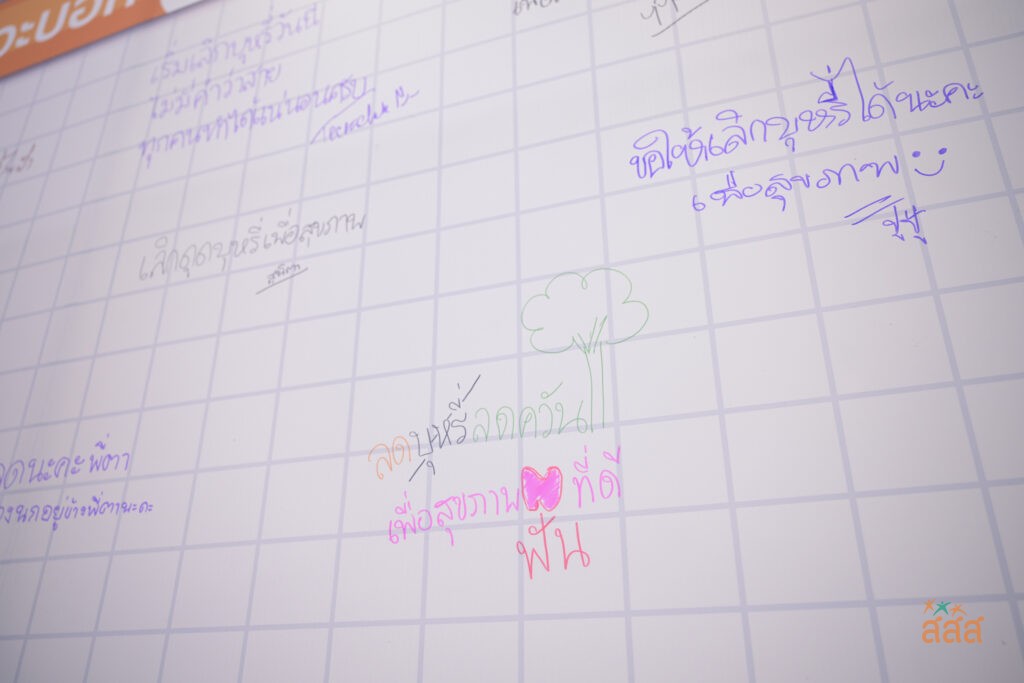 เริ่มเลิกบุหรี่วันนี้
ไม่มีคำว่าสาย
ทุกคนทำได้แน่นอนครับ
ขอให้เลิกบุหรี่ได้นะคะ
เพื่อสุขภาพ
ปูชู
เลิกดูดบุหรี่เพื่อสุขภาพ
ลดบุหรี่ลดควัน
เพื่อสุขภาพ ที่ดี
ฟัน
นะคะ พี่ตา
อยู่ข้างพี่ตานะคะ
สสส